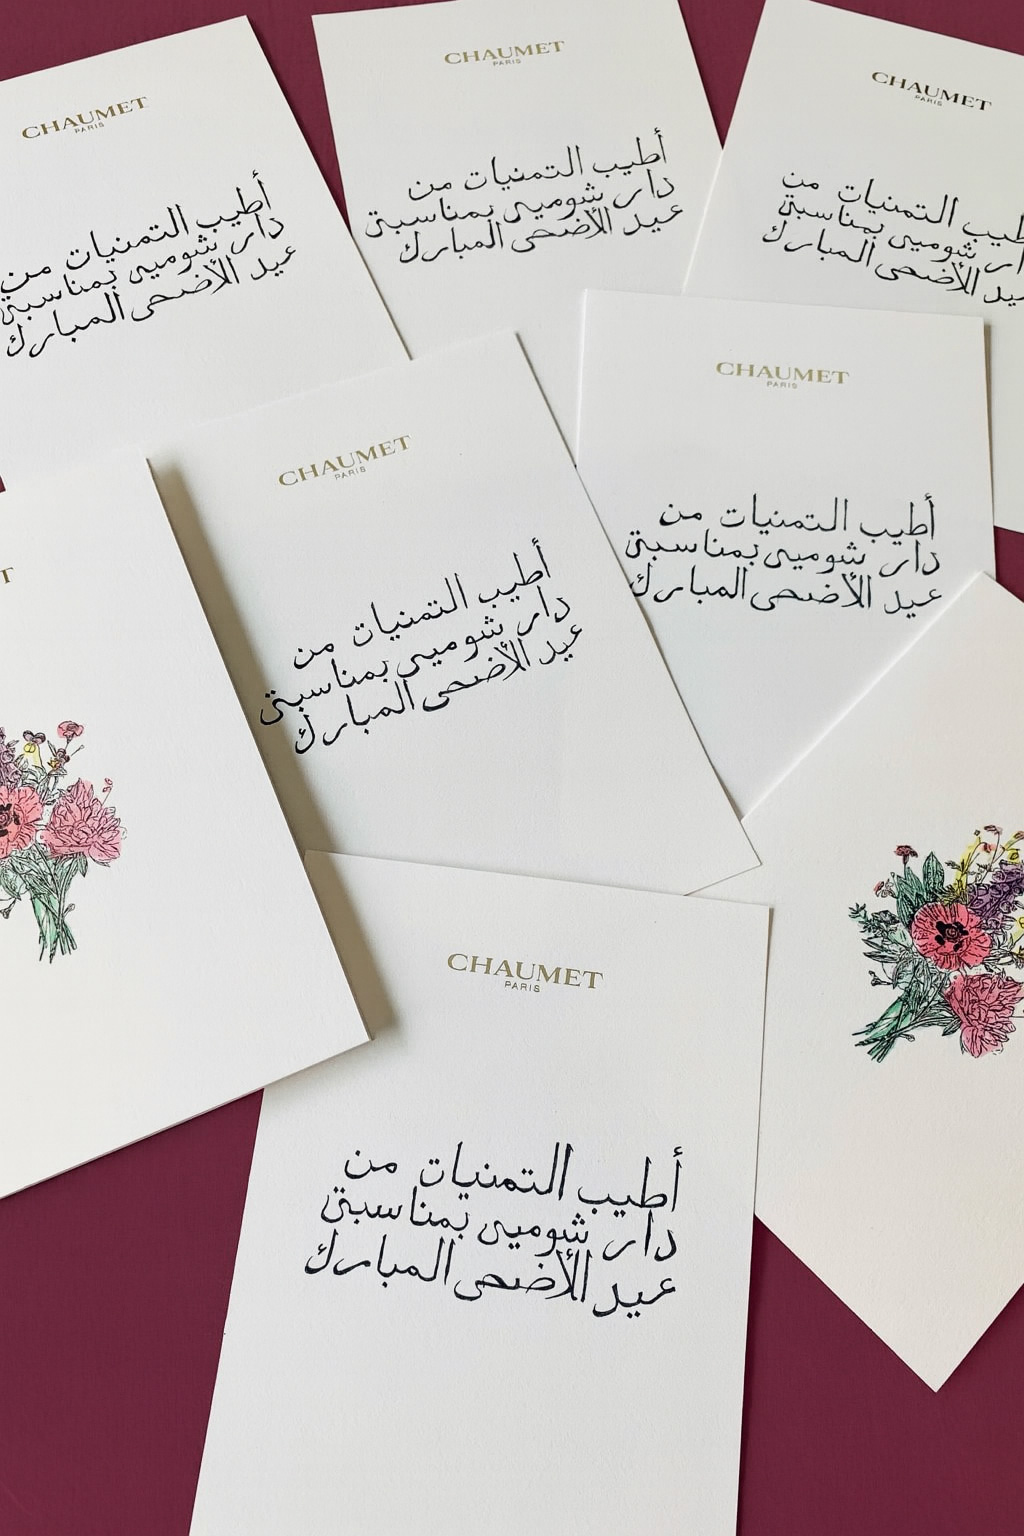 CHAUMET
PARIS
أطيب التمنيات من
دار شوميى بمناسبة
عيد الأضحى المبارك
CHAUMET
PARIS
أطيب التمنيات من
دار شوميى بمناسبة
عيد الأضحى المبارك
CHAUMET
PARIS
التمنيات من
شوميى بمناسبة
الأضحى المبارك
CHAUMET
PARIS
أطيب التمنيات من
دار شوميى بمناسبة
عيد الأضحى المبارك
CHAUMET
PARIS
أطيب التمنيات من
دار شوميى بمناسبة
عيد الأضحى المبارك
CHAUMET
PARIS
أطيب التمنيات من
دار شوميى بمناسبة
عيد الأضحى المبارك